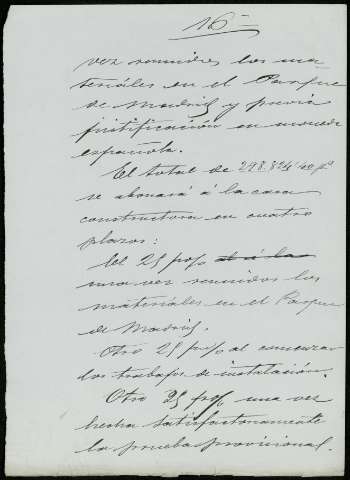 16
vez reunidos los ma-
teriales en el Parque
de Madrid y previa
justificación en moneda
española.
El total de 298.824'40 ps
se abonará á la casa
constructora en cuatro
plazos:
El 25 p% una vez reunidos los
materiales en el Parque
de Madrid.
Otro 25 p% al comenzar
los trabajos de instalación.
Otro 25 p% una vez
hecha satisfactoriamente
la prueba provisional.